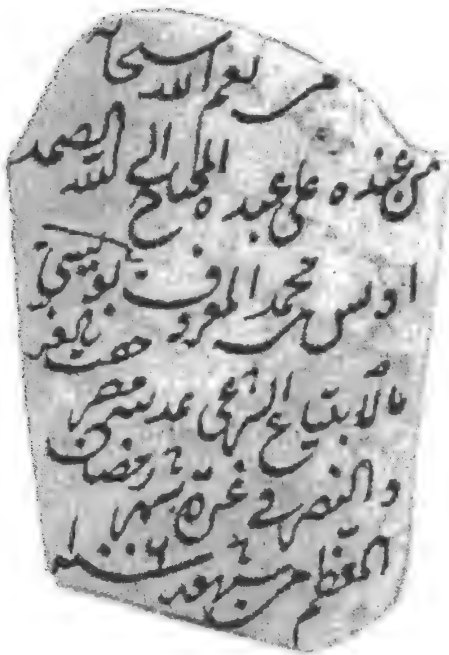 من نعم الله سبحانه
من عنده على عبده المحتاج الى الله الصمد
اويس بن محمد المعروف بويسي
بالابتياع الشرعي بمدينة مصر حفت بالعز
والنصر في غرة شهر رمضان
المعظم من شهور سنة